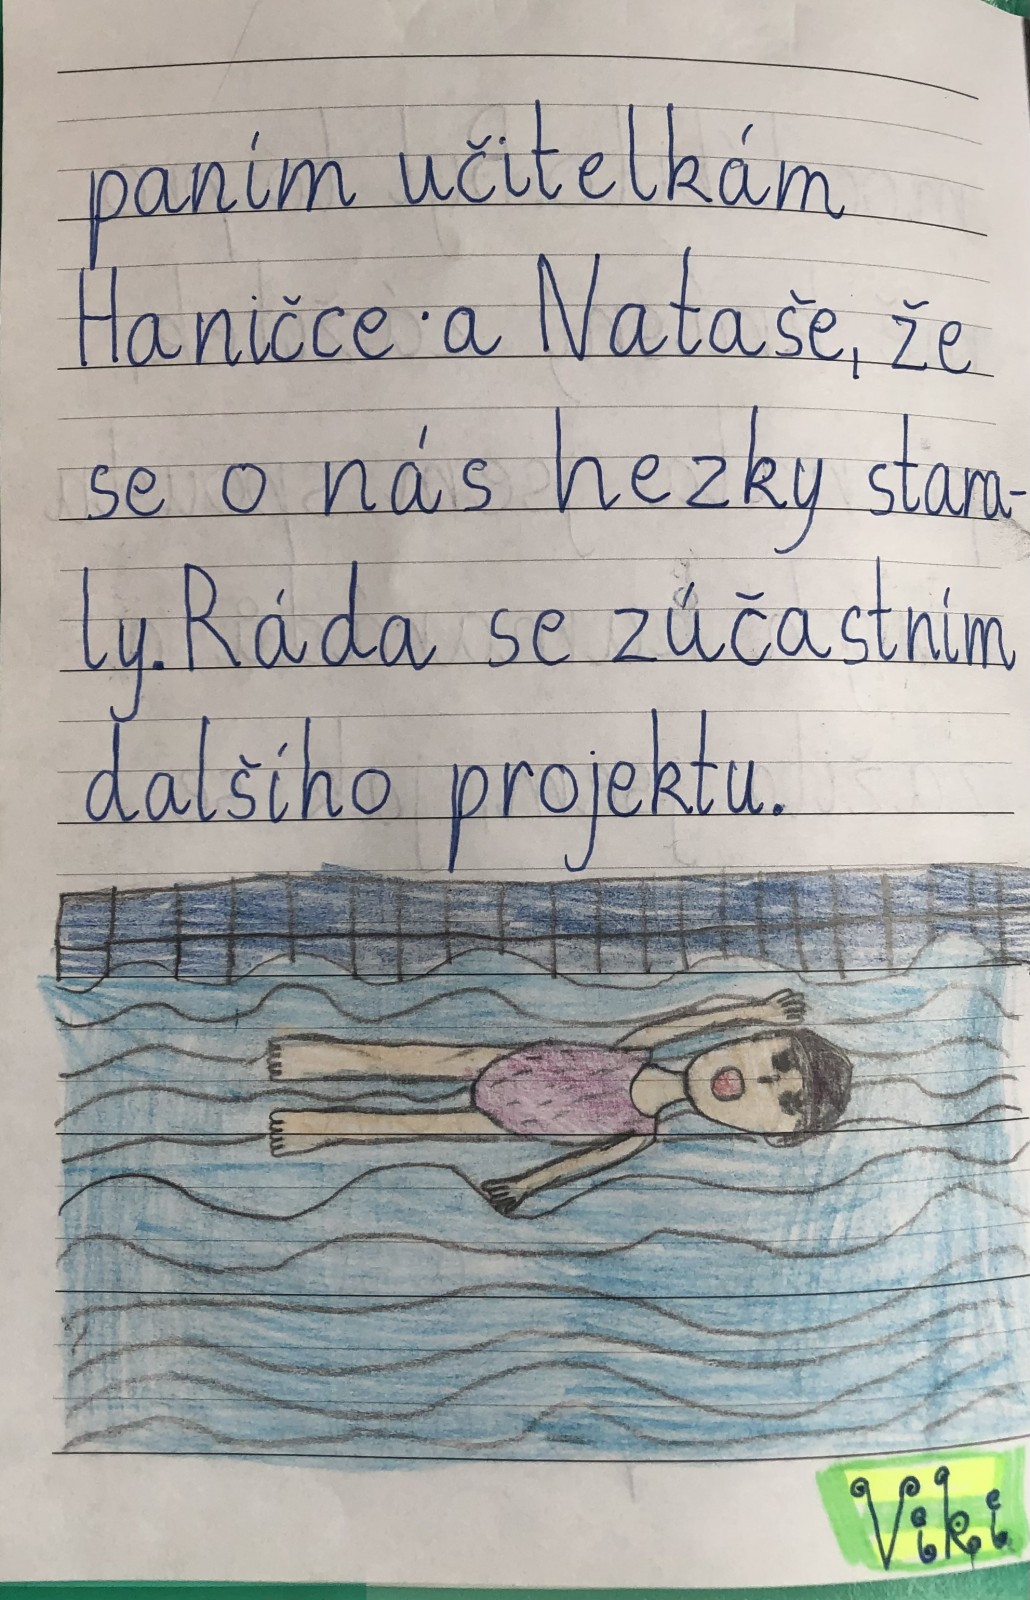 paním učitelkám
Haničce a Nataše, že
se o nás hezky stara-
ly. Ráda se zúčastním
dalšího projektu.
Viki